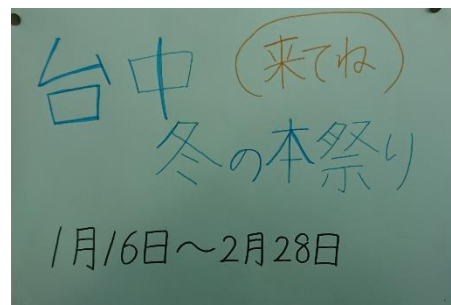 台中 来てね
冬の本祭り
1月16日～2月28日